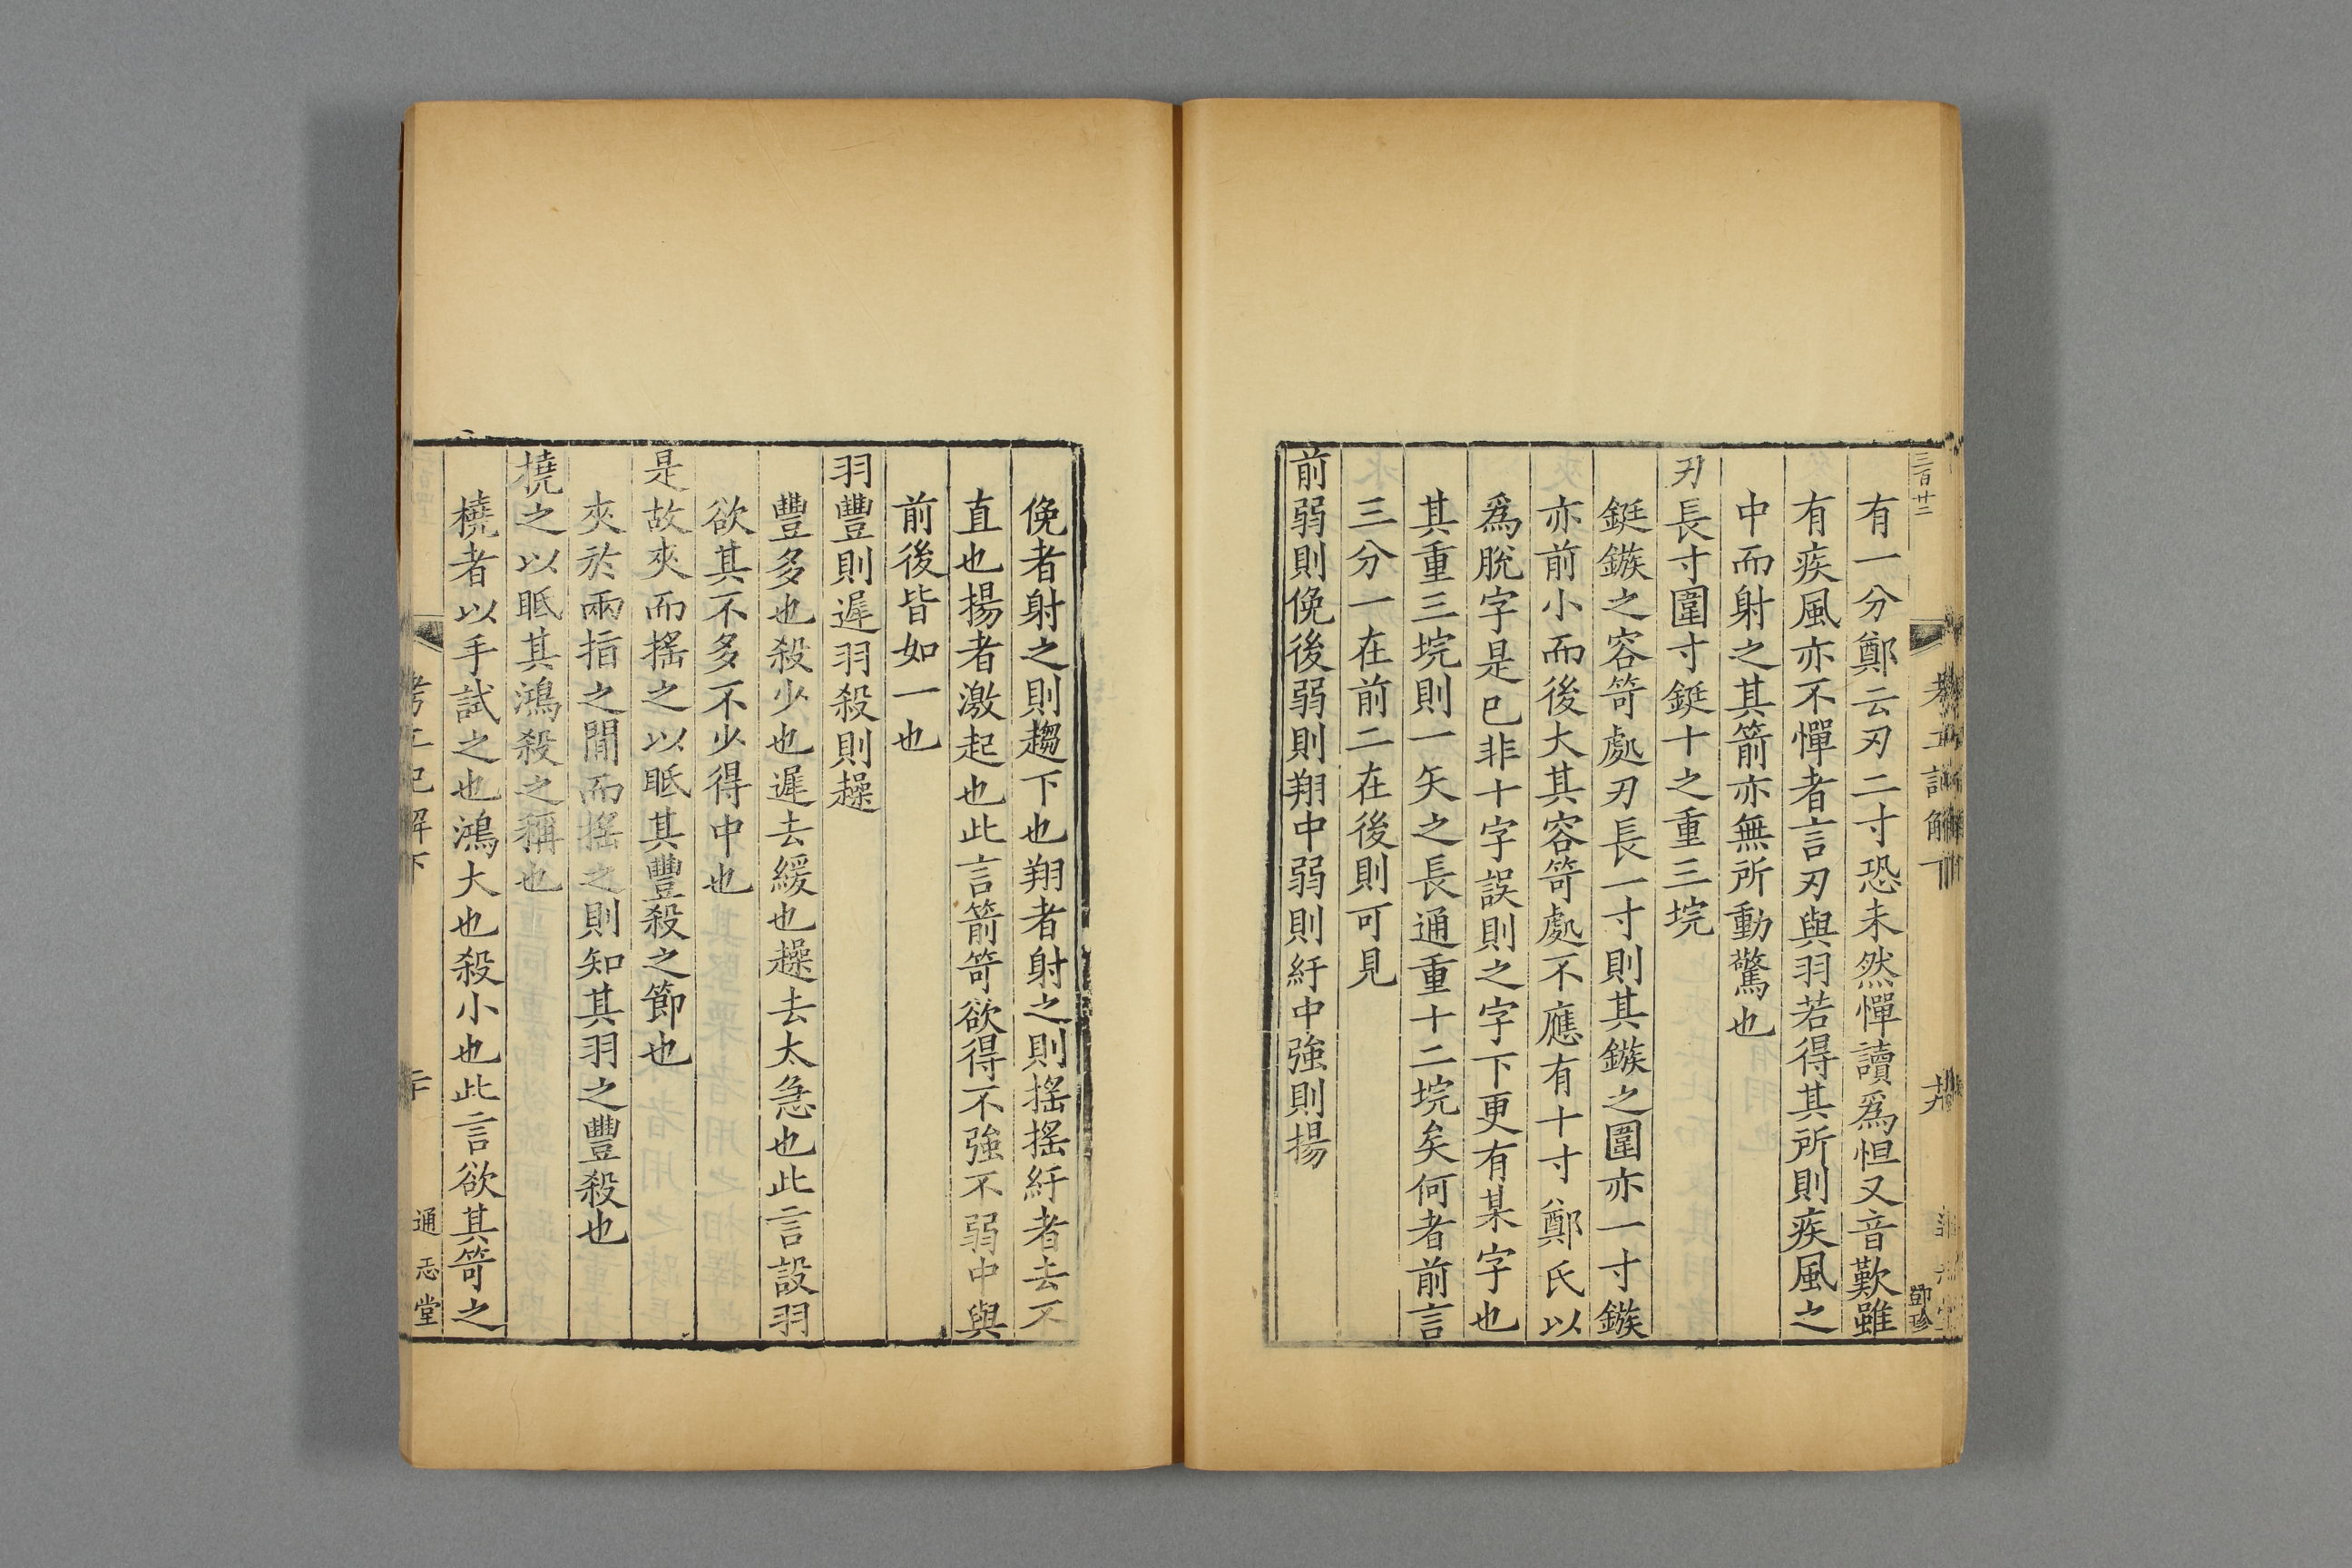 三百廿二
有一分鄭云刃二寸恐未然憚讀爲怛又音歎雖
有疾風亦不憚者言刃與羽若得其所則疾風之
中而射之其箭亦無所動驚也
刃長寸圍寸鋌十之重三垸
鋌鏃之容笴處刃長一寸則其鏃之圍亦一寸鏃
亦前小而後大其容笴處不應有十寸鄭氏以
爲脫字是巳非十字誤則之字下更有某字也
其重三垸則一矢之長通重十二垸矣何者前言
三分一在前二在後則可見
前弱則俛後弱則翔中弱則紆中強則揚
俛者射之則趨下也翔者射之則搖搖紆者去不
直也揚者激起也此言箭笴欲得不強不弱中與
前後皆如一也
羽豐則遲羽殺則趮
豐多也殺少也遲去緩也趮去太急也此言設羽
欲其不多不少得中也
是故夾而搖之以眡其豐殺之節也
夾於兩指之間而搖之則知其羽之豐殺也
橈之以眡其鴻殺之稱也
橈者以手試之也鴻大也殺小也此言欲其笴之
考工記解下
通志堂